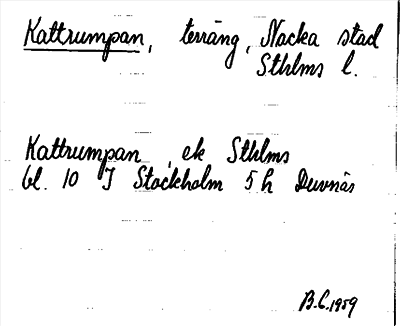 Kattrumpan, terräng, Nacka stad
Sthlms l.
Kattrumpan, ek Sthlms
bl. 10 I Stockholm 5 h Duvnäs
B.C. 1959